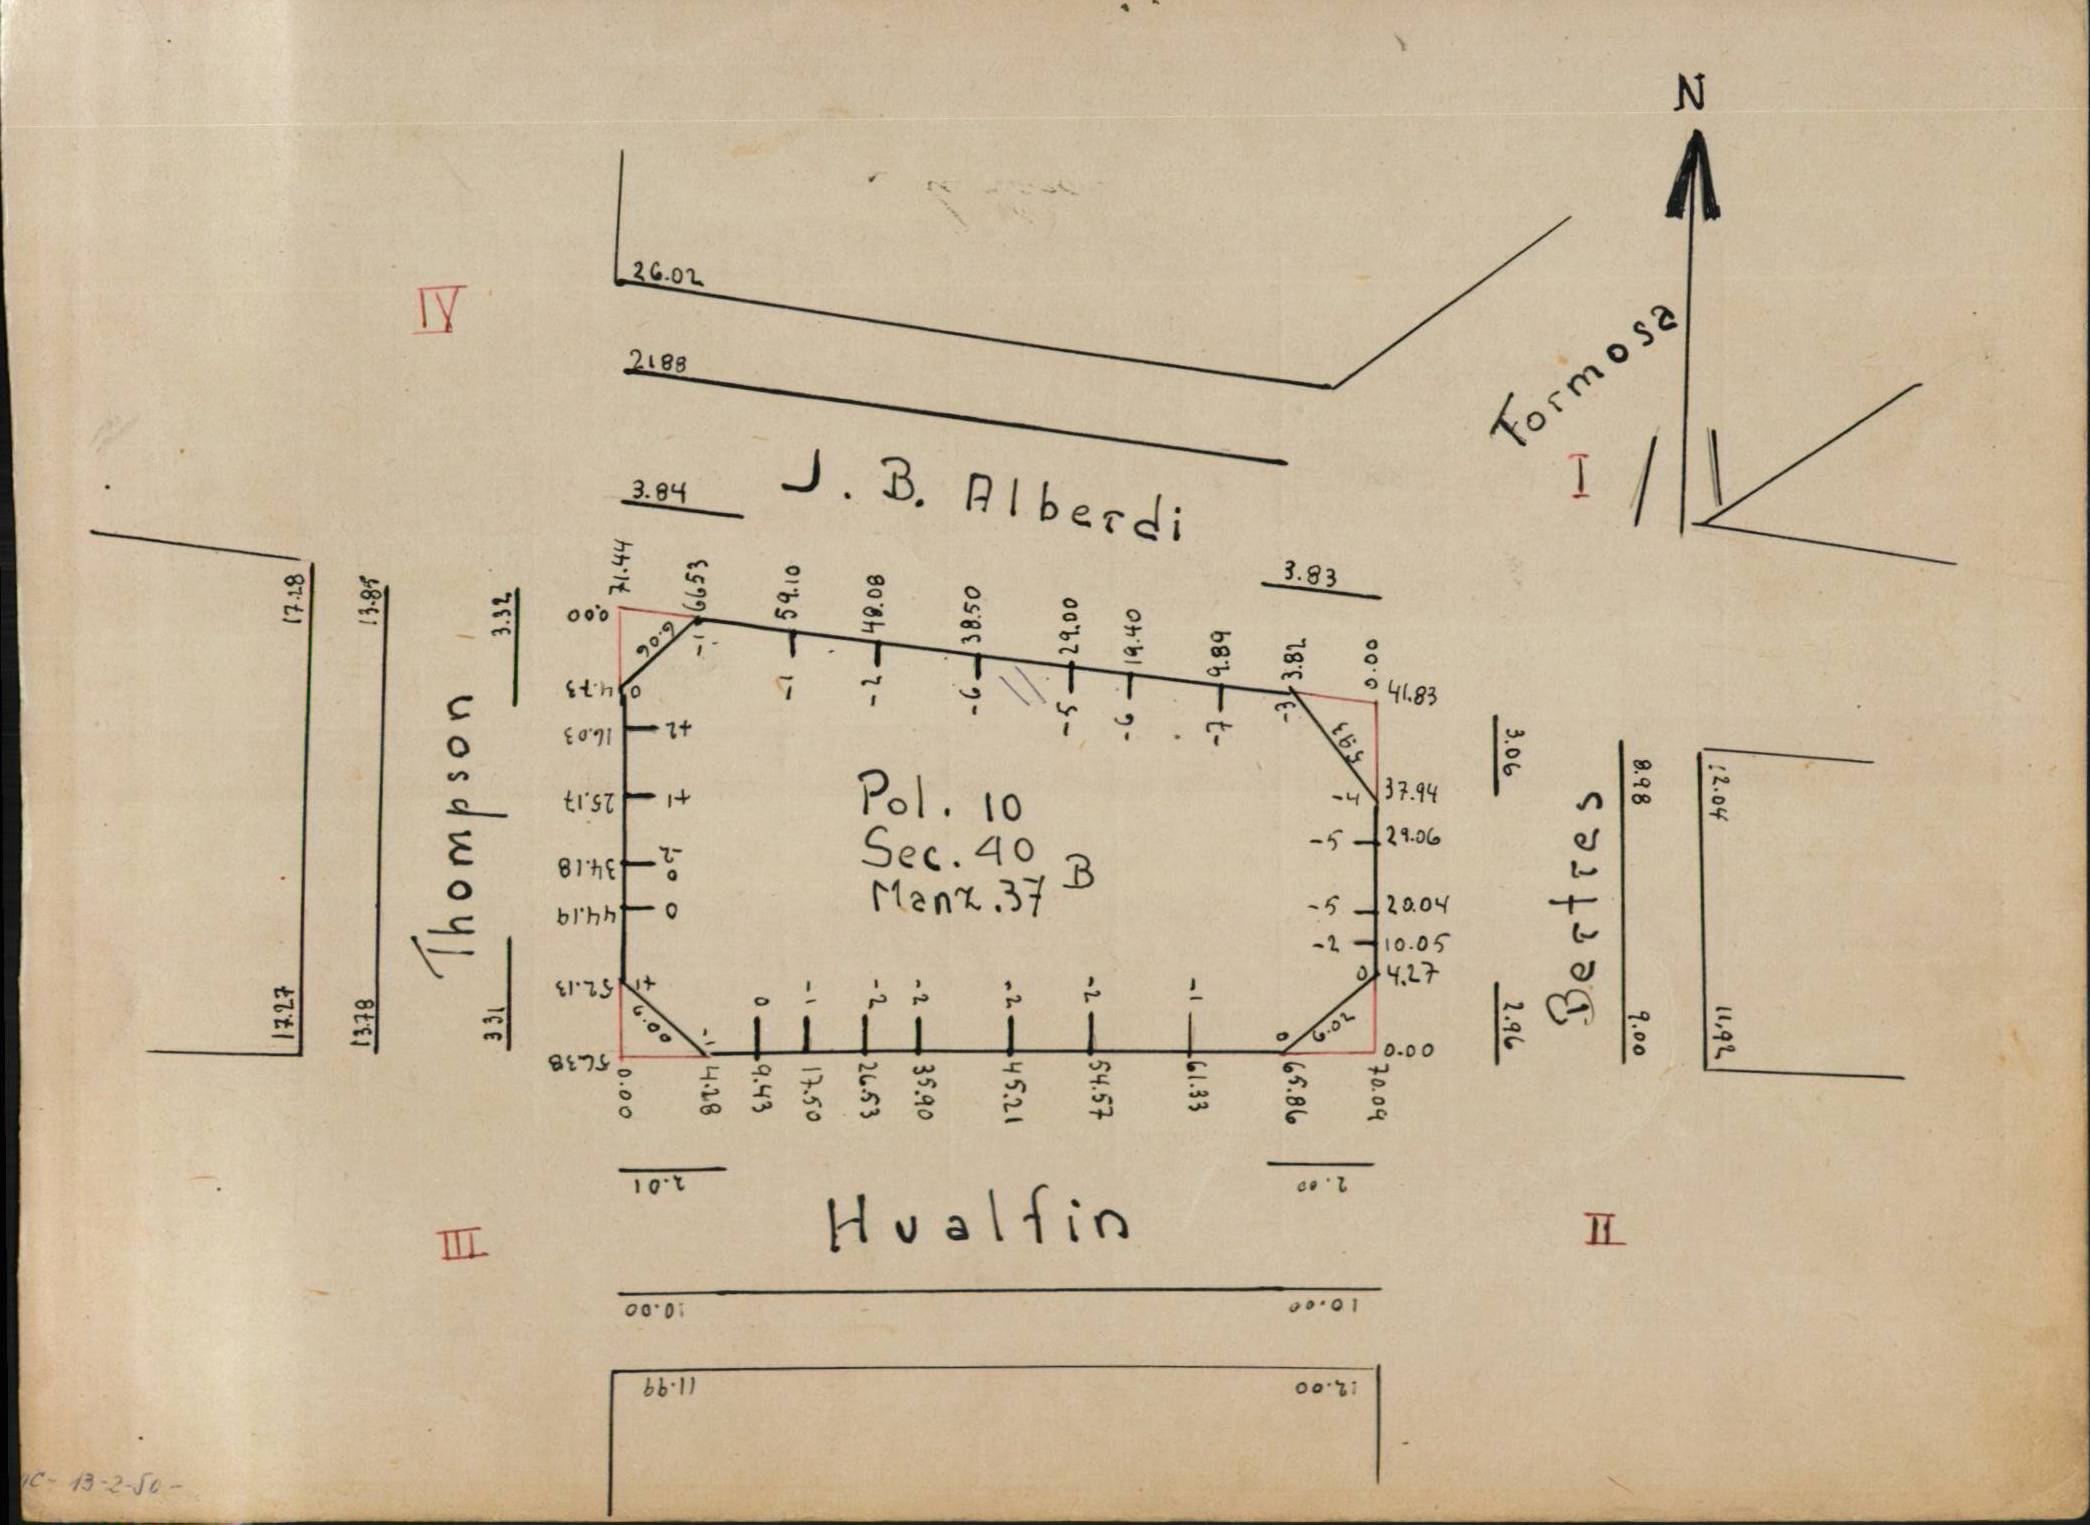 N
IV
26.02
21.88
Formosa
I
J. B. Alberdi
3.84
3.83
71.44
66.53
59.10
48.08
38.50
29.00
19.40
9.89
3.82
0.00
-1
-1
-2
-6
-5
-6
-7
-3
17.28
13.85
3.32
0.00
6.06
4.73
0
16.03
+2
25.17
+1
34.18
-2
0
44.19
0
52.13
+1
56.38
6.00
Thompson
17.27
13.78
3.31
Pol. 10
Sec. 40
Manz. 37 B
41.83
5.93
37.94
-4
29.06
-5
20.04
-5
10.05
-2
4.27
0
0.00
6.02
3.06
8.98
12.04
Beertres
2.96
9.00
11.92
-1
0
-1
-2
-2
-2
-2
-1
0
0.00
4.28
9.43
17.50
26.53
35.90
45.21
54.57
61.33
65.86
70.09
2.01
2.00
Hualfin
III
II
10.00
10.00
11.99
12.00
13-2-50-